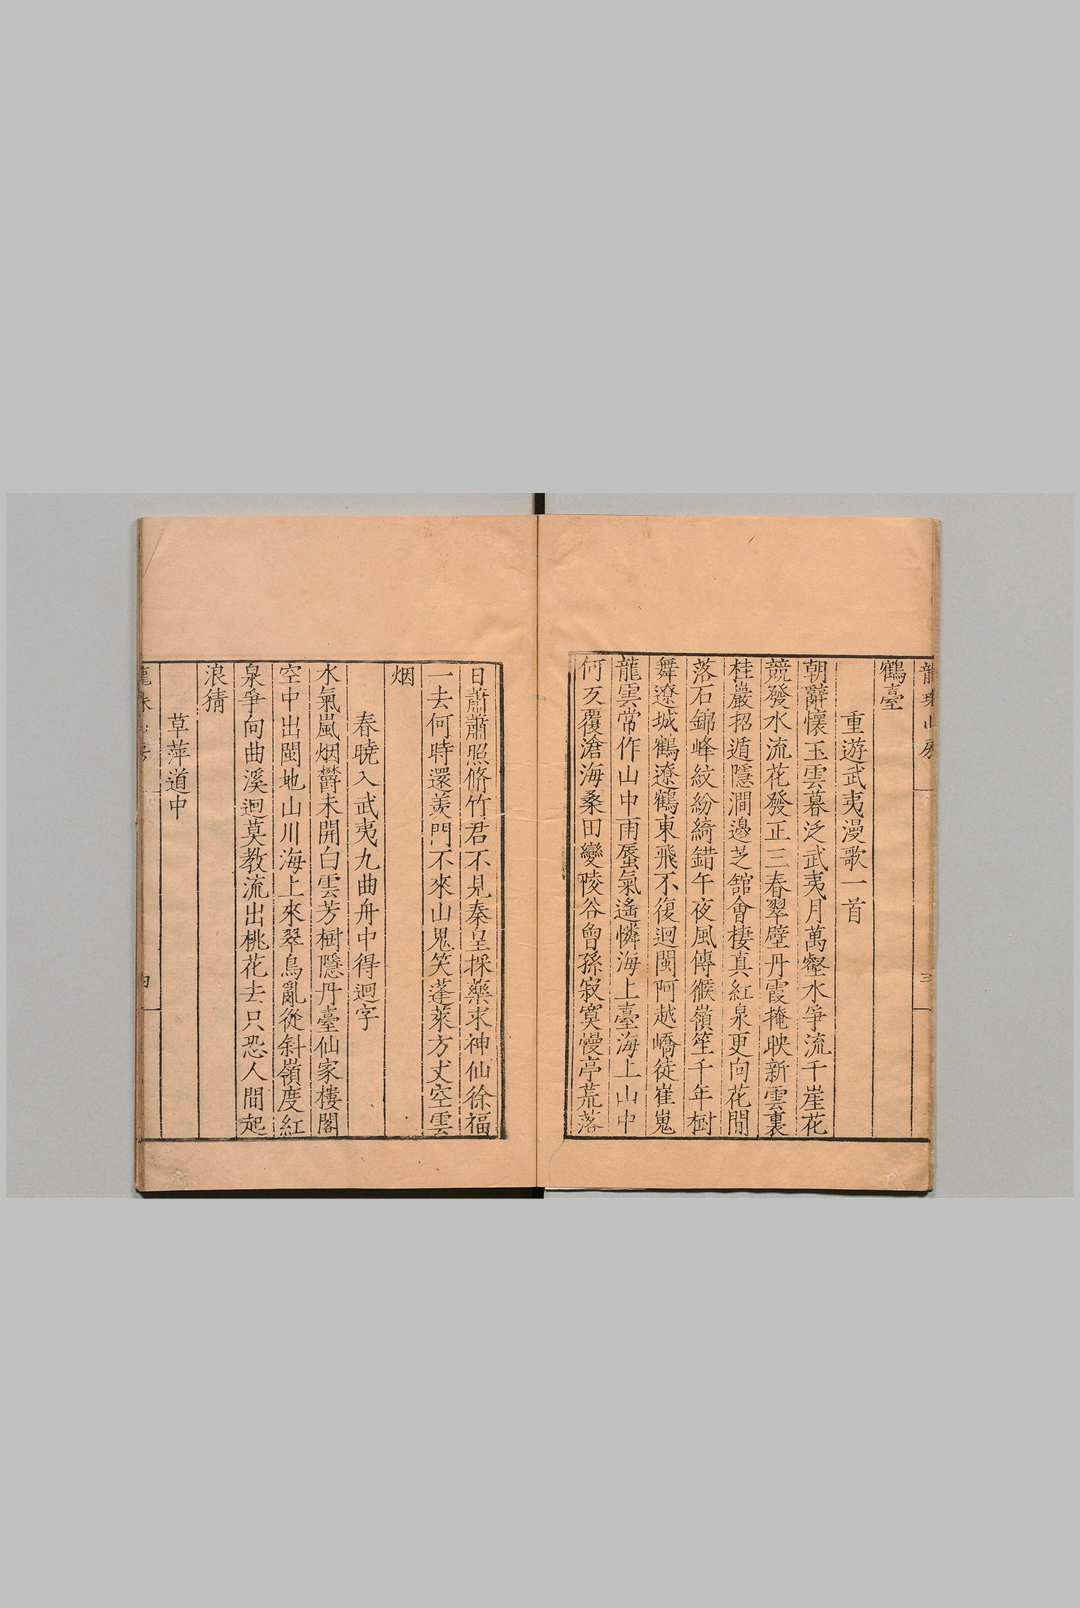 龍珠山房
三
鶴臺
重遊武夷漫歌一首
朝辭懷玉雲暮泛武夷月萬壑水爭流千崖花
競發水流花發正三春翠壁丹霞掩映新雲裏
桂巖招遁隱澗邊芝館會棲真紅泉更向花間
落石錦峰紋紛綺錯午夜風傳緱嶺笙千年樹
舞遼城鶴遼鶴東飛不復迴閩阿越嶠徒崔嵬
龍雲常作山中雨蜃氣遙憐海上臺海上山中
何歹覆滄海桑田變陵谷曾孫寂寞慢亭荒落
日蕭蕭照脩竹君不見秦皇採藥求神仙徐福
一去何時還羨門不來山鬼笑蓬萊方丈空雲
烟
春曉入武夷九曲舟中得迴字
水氣嵐烟鬱未開白雲芳樹隱丹臺仙家樓閣
空中出閩地山川海上來翠鳥亂從斜嶺度紅
泉爭向曲溪迴莫教流出桃花去只恐人間起
浪猜
草萍道中